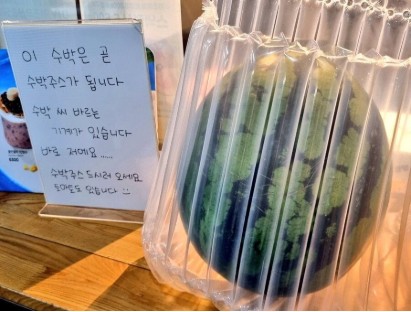 이 수박은 곧
수박주스가 됩니다
수박 씨 바르는
기계가 있습니다
바로 저예요.....
수박주스 드시러 오세요
토마토도 있습니다 :)